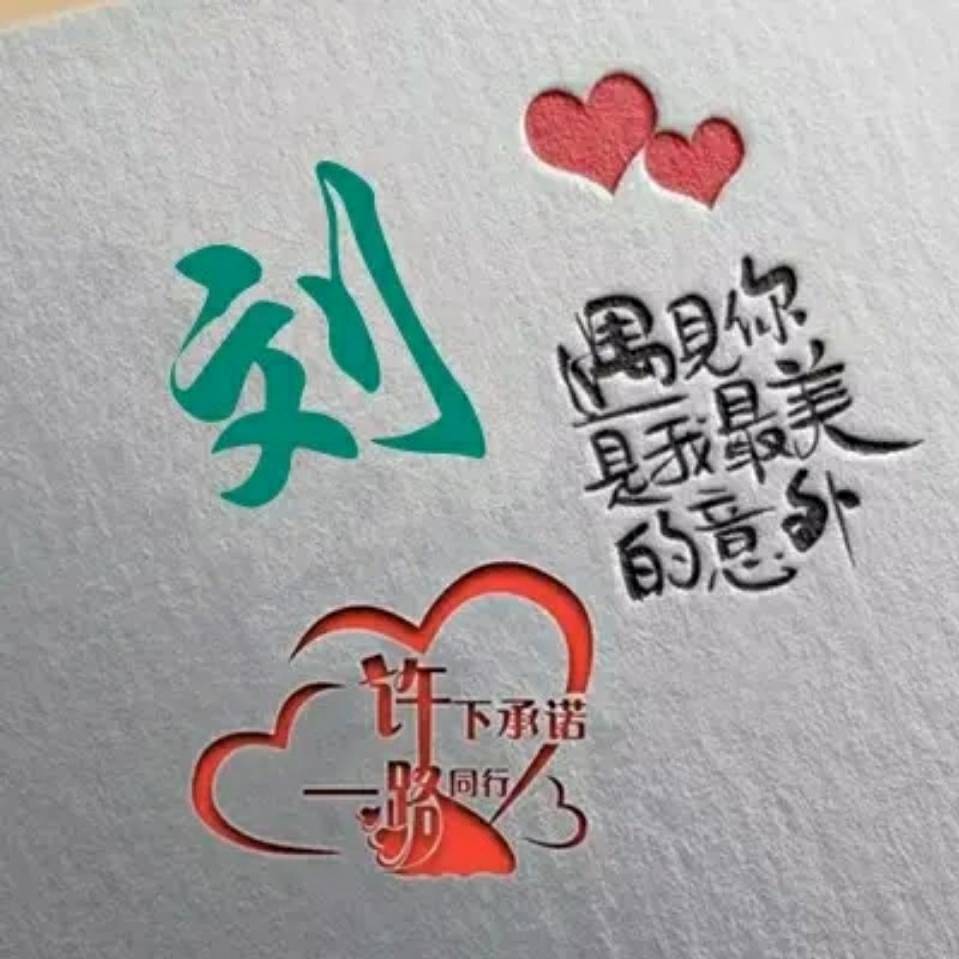 到
遇見你
是我最美
的意外
许下承诺
一路同行